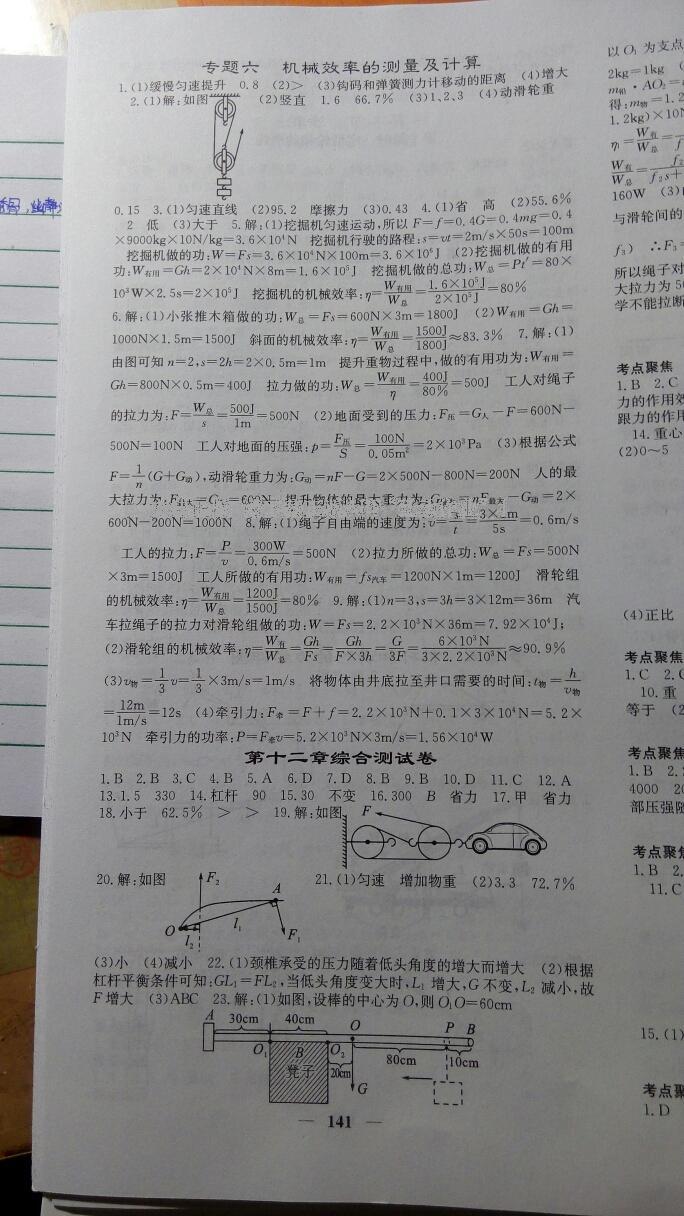 专题六 机械效率的测量及计算
1.(1)缓慢匀速提升 0.8 (2)> (3)钩码和弹簧测力计移动的距离 (4)增大
2.(1)解:如图 (2)竖直 1.6 66.7% (3)1、2、3 (4)动滑轮重
0.15 3.(1)匀速直线 (2)95.2 摩擦力 (3)0.43 4.(1)省 高 (2)55.6%
2 低 (3)大于 5.解:(1)挖掘机匀速运动,所以F=f=0.4G=0.4mg=0.4
×9000kg×10N/kg=3.6×10⁴N 挖掘机行驶的路程:s=vt=2m/s×50s=100m
挖掘机做的功:W=Fs=3.6×10⁴N×100m=3.6×10⁶J (2)挖掘机做的有用
功:W有用=Gh=2×10⁴N×8m=1.6×10⁵J 挖掘机做的总功:W总=Pt′=80×
10³W×2.5s=2×10⁵J 挖掘机的机械效率:η=W有用/W总=1.6×10⁵J/2×10⁵J=80%
6.解:(1)小张推木箱做的功:W总=Fs=600N×3m=1800J (2)W有用=Gh=
1000N×1.5m=1500J 斜面的机械效率:η=W有用/W总=1500J/1800J≈83.3% 7.解:(1)
由图可知n=2,s=2h=2×0.5m=1m 提升重物过程中,做的有用功为:W有用=
Gh=800N×0.5m=400J 拉力做的功:W总=W有用/η=400J/80%=500J 工人对绳子
的拉力为:F=W总/s=500J/1m=500N (2)地面受到的压力:F压=G人-F=600N-
500N=100N 工人对地面的压强:p=F压/S=100N/0.05m²=2×10³Pa (3)根据公式
F=1/n(G+G动),动滑轮重力为:G动=nF-G=2×500N-800N=200N 人的最
大拉力为:F最大=G人=600N 提升物体的最大重力为:G最大=nF最大-G动=2×
600N-200N=1000N 8.解:(1)绳子自由端的速度为:v=s/t=3×1m/5s=0.6m/s
工人的拉力:F=P/v=300W/0.6m/s=500N (2)拉力所做的总功:W总=Fs=500N
×3m=1500J 工人所做的有用功:W有用=fs汽车=1200N×1m=1200J 滑轮组
的机械效率:η=W有用/W总=1200J/1500J=80% 9.解:(1)n=3,s=3h=3×12m=36m 汽
车拉绳子的拉力对滑轮组做的功:W=Fs=2.2×10³N×36m=7.92×10⁴J;
(2)滑轮组的机械效率:η=W有/W总=Gh/Fs=Gh/F×3h=G/3F=6×10³N/3×2.2×10³N≈90.9%
(3)v物=1/3v=1/3×3m/s=1m/s 将物体由井底拉至井口需要的时间:t物=h/v物
=12m/1m/s=12s (4)牵引力:F牵=F+f=2.2×10³N+0.1×3×10⁴N=5.2×
10³N 牵引力的功率:P=F牵v=5.2×10³N×3m/s=1.56×10⁴W
第十二章综合测试卷
1.B 2.B 3.C 4.B 5.A 6.D 7.D 8.B 9.B 10.D 11.C 12.A
13.1.5 330 14.杠杆 90 15.30 不变 16.300 B 省力 17.甲 省力
18.小于 62.5% > > 19.解:如图
F
20.解:如图 21.(1)匀速 增加物重 (2)3.3 72.7%
F₂ A
O l₂ l₁ F₁
(3)小 (4)减小 22.(1)颈椎承受的压力随着低头角度的增大而增大 (2)根据
杠杆平衡条件可知:GL₁=FL₂,当低头角度变大时,L₁增大,G不变,L₂减小,故
F增大 (3)ABC 23.解:(1)如图,设棒的中心为O,则O₁O=60cm
A 30cm 40cm O P B
O₁ B O₂ 80cm 10cm
凳子 20cm G
141
以O₁为支点
2kg=1kg
m铅·AO₂=
得:m物=1.2
1.2kg)×10N
160W (3)
与滑轮间的
f₃) ∴F₃=
所以绳子对
大拉力为50
学不能拉断
考点聚焦
1.B 2.C
力的作用效
跟力的作用
14.重心
(2)0~5
(4)正比
考点聚焦
1.C 2.C
10.重
等于 (2
考点聚焦
1.B 2.
4000 20
部压强随
考点聚焦
1.B 2.
11.C
15.(1)
考点聚
1.D